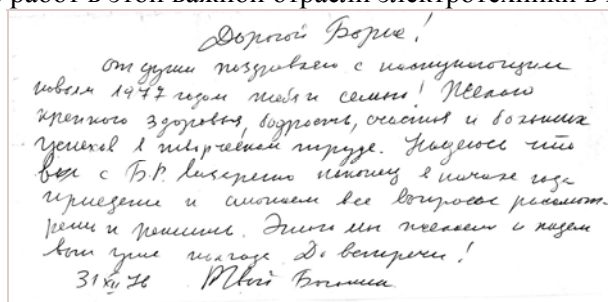 работ в этой важной отрасли электротехники в
Дорогой Борис!
от души поздравляю с наступающим
новым 1977 годом тебя и семью! Желаю
крепкого здоровья, бодрости, счастья и больших
успехов в творческом труде. Надеюсь что
вы с Б.Р. наконец в начале года
приедете и сможем все вопросы рассмот-
реть и решить. Этого мы желаем и
вот уже полгода. До встречи!
31 XII 76 Твой